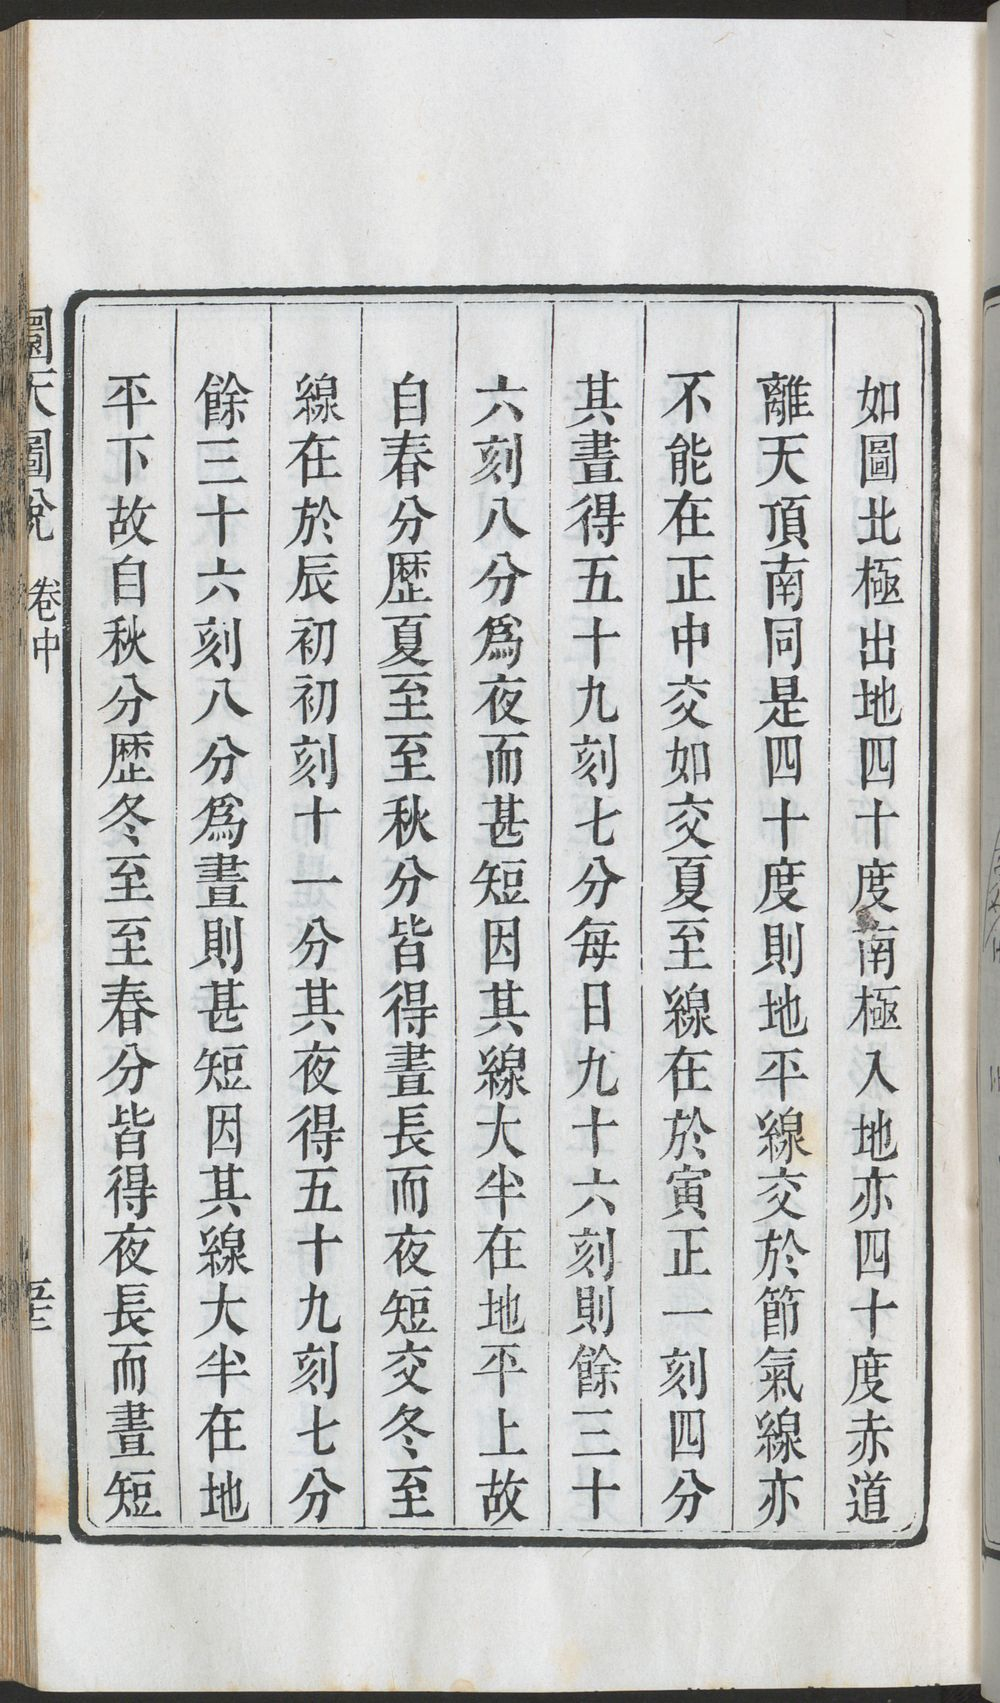 如圖北極出地四十度南極入地亦四十度赤道
離天頂南同是四十度則地平線交於節氣線亦
不能在正中交如交夏至線在於寅正一刻四分
其晝得五十九刻七分每日九十六刻則餘三十
六刻八分爲夜而甚短因其線大半在地平上故
自春分歷夏至至秋分皆得晝長而夜短交冬至
線在於辰初初刻十一分其夜得五十九刻七分
餘三十六刻八分爲晝則甚短因其線大半在地
平下故自秋分歷冬至至春分皆得夜長而晝短
圜天圖說 卷中